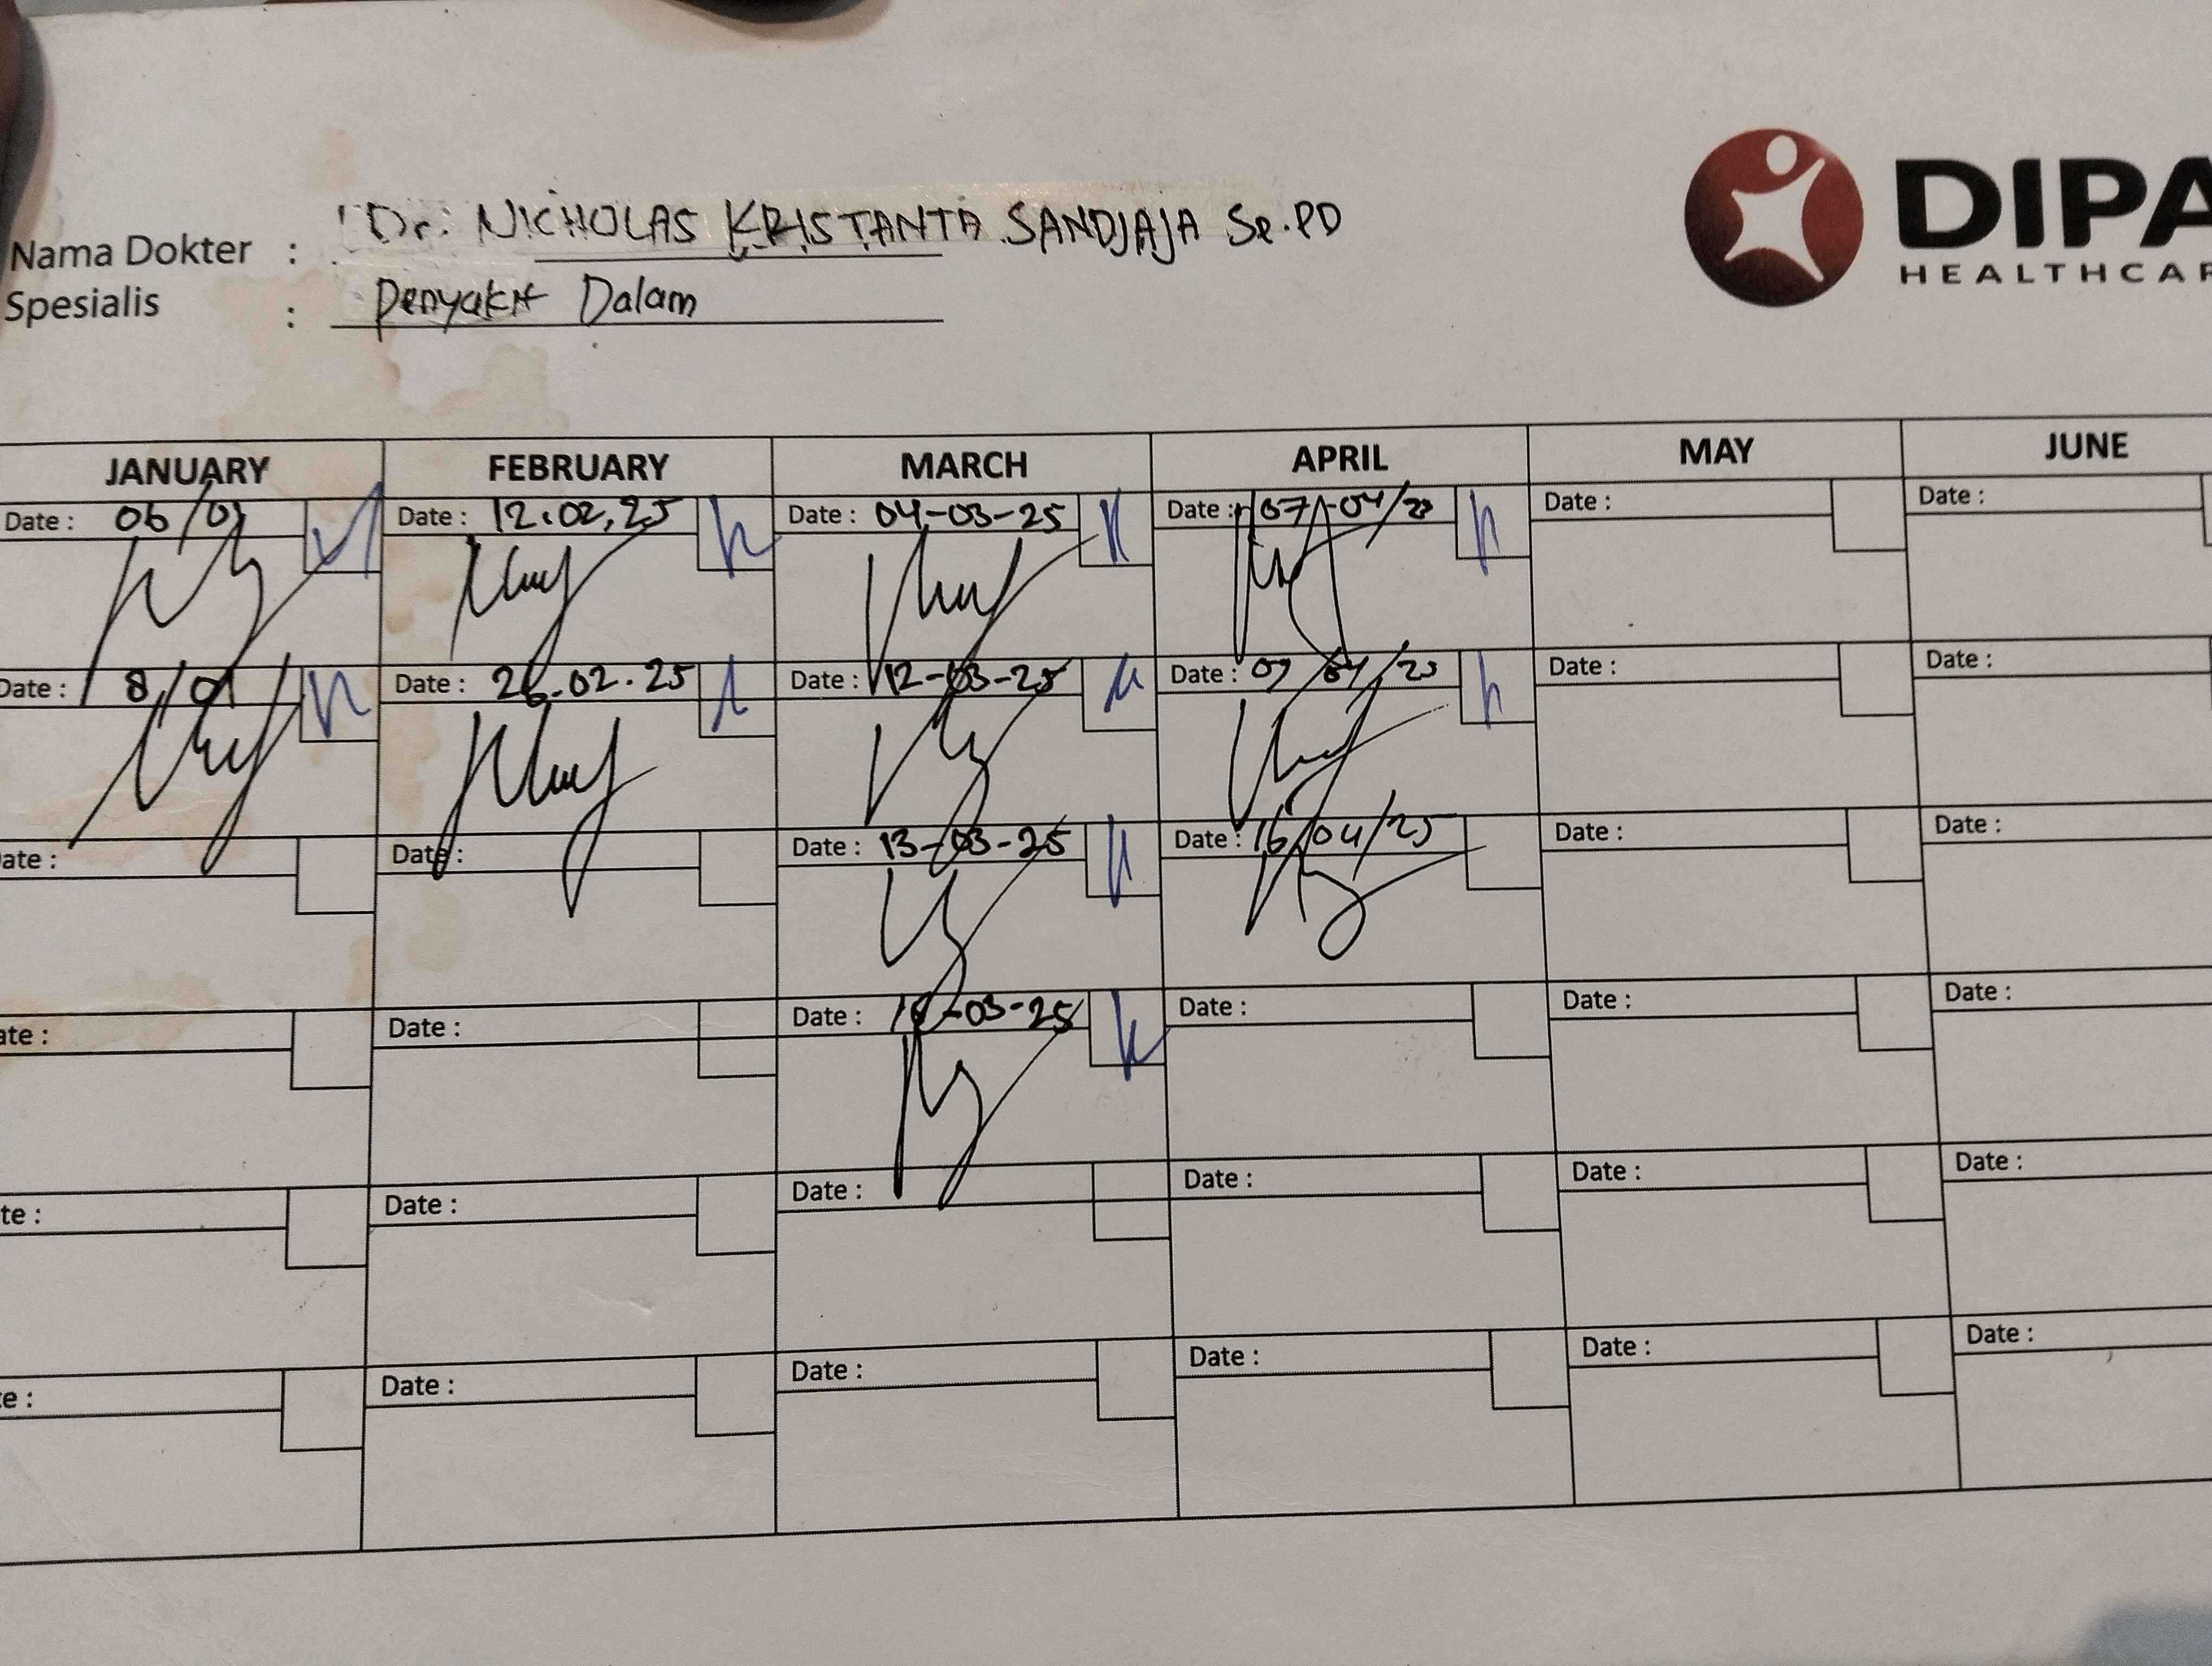 Nama Dokter : Dr. NICHOLAS KRISTANTA SANDJAJA Sp.PD
Spesialis : Penyakit Dalam
DIPA
HEALTHCAR
JANUARY FEBRUARY MARCH APRIL MAY JUNE
Date : 06/01 Date : 12.02.25 Date : 04-03-25 Date : 07-04/25 Date : Date :
Date : 8/01 Date : 26.02.25 Date : 12-03-25 Date : 09/04/25 Date : Date :
ate : Date : Date : 13-03-25 Date : 16/04/25 Date : Date :
ate : Date : Date : -03-25 Date : Date : Date :
te : Date : Date : Date : Date : Date :
e : Date : Date : Date : Date : Date :